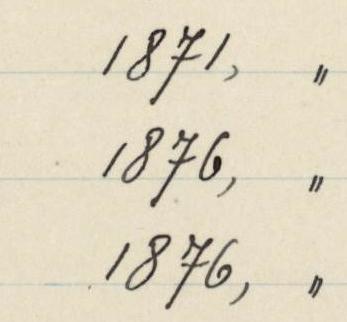 1871, "
1876, "
1876, "